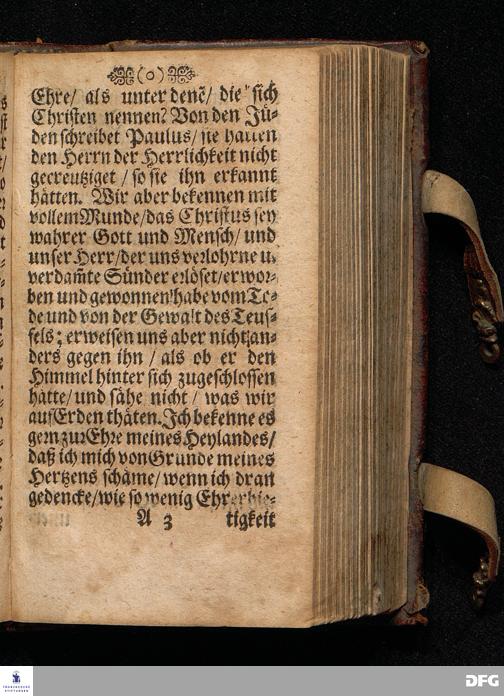 (o)
Ehre/ als unter denẽ/ die sich
Christen nennen? Von den Jü-
den schreibet Paulus/ sie hätten
den Herrn der Herrlichkeit nicht
gecreutziget / so sie ihn erkannt
hätten. Wir aber bekennen mit
vollem Munde/ das Christus sey
wahrer Gott und Mensch/ und
unser Herr/ der uns verlohrne u.
verdam̃te Sünder erlöset/ erwor-
ben und gewonnen habe vom To-
de und von der Gewalt des Teuf-
fels; erweisen uns aber nicht an-
ders gegen ihn / als ob er den
Himmel hinter sich zugeschlossen
hätte/ und sähe nicht / was wir
auf Erden thäten. Ich bekenne es
gern zur Ehre meines Heylandes/
daß ich mich von Grunde meines
Hertzens schäme/ wenn ich dran
gedencke/ wie so wenig Ehrerbie-
A 3 tigkeit
FRANCKESCHE STIFTUNGEN
DFG